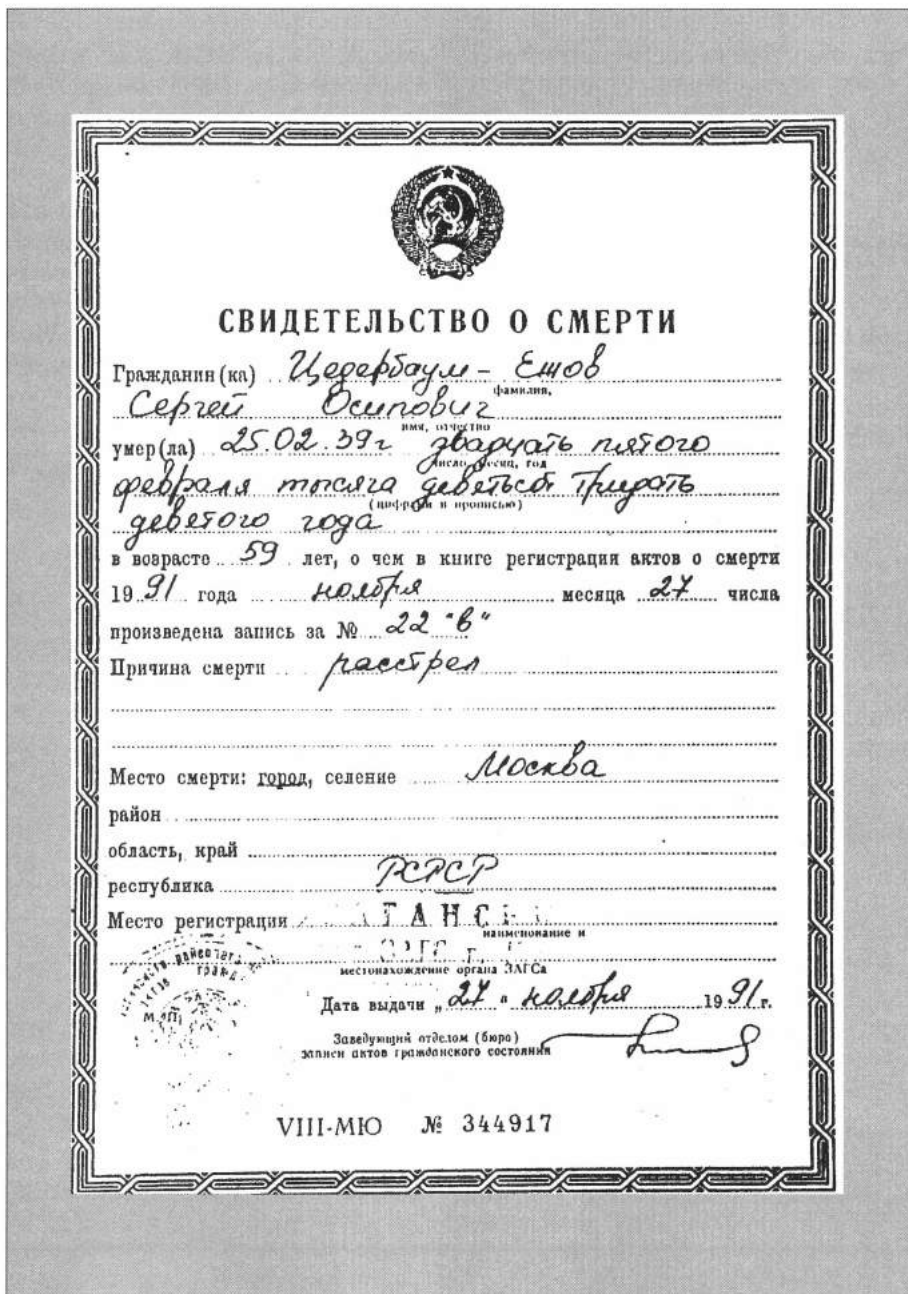 СВИДЕТЕЛЬСТВО О СМЕРТИ
Гражданин(ка) Цедербаум - Ежов
фамилия,
Сергей Осипович
имя, отчество
умер(ла) 25.02.39г двадцать пятого
число, месяц, год
февраля тысяча девятьсот тридцать
(цифрами и прописью)
девятого года
в возрасте 59 лет, о чем в книге регистрации актов о смерти
19 91 года ноября месяца 27 числа
произведена запись за № 22 "в"
Причина смерти расстрел
Место смерти: город, селение Москва
район
область, край
республика РСФСР
Место регистрации
наименование и
местонахождение органа ЗАГСа
Дата выдачи „27" ноября 19 91 г.
М. П.
Заведующий отделом (бюро)
записи актов гражданского состояния
VIII-МЮ № 344917